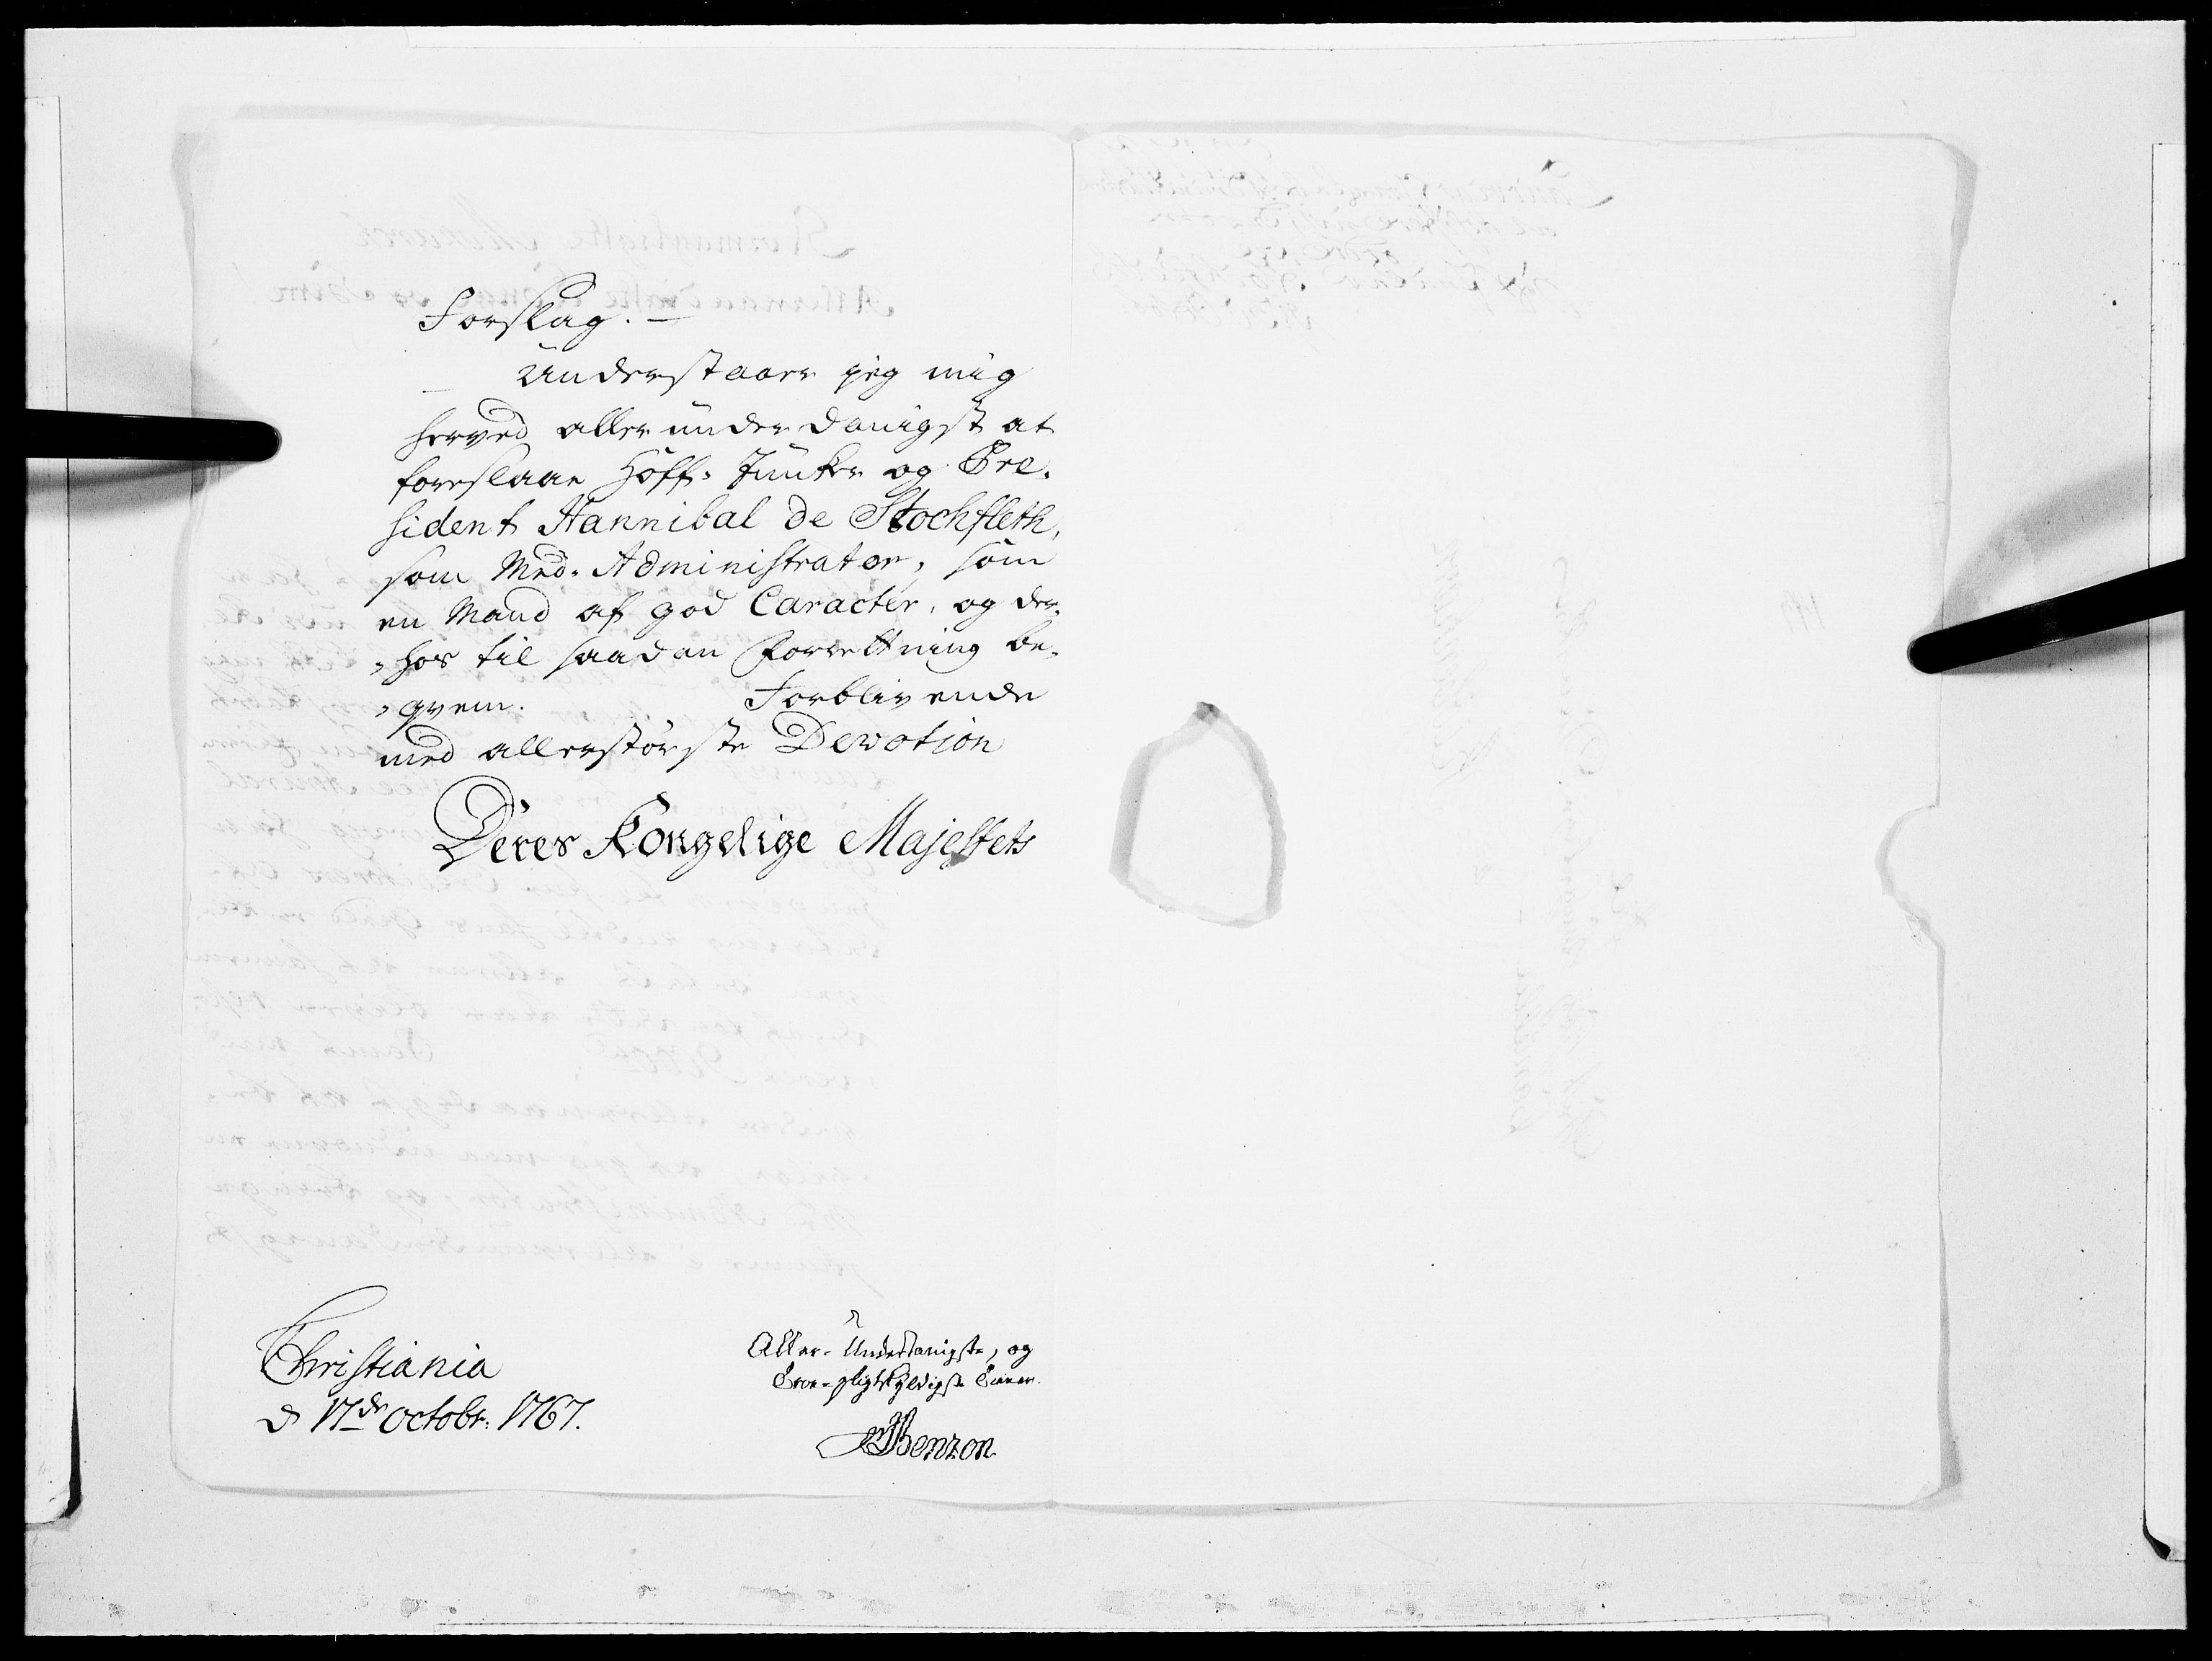 Forslag. —
Understaaer jeg mig
herved allerunderdanigst at
foreslaae Hoff-Junker og Præ-
sident Hannibal de Stochfleth,
som Med-Administrator, som
en Mand af god Caracter, og der-
-hos til saadan Forrettning be-
-qvem. Forblivende
med allerstørste Devotion
Deres Kongelige Majestets
Christiania
d 17de Octobr: 1767.
Aller-Underdanigste, og
Troe-pligtskyldigste Tiener.
Benzon